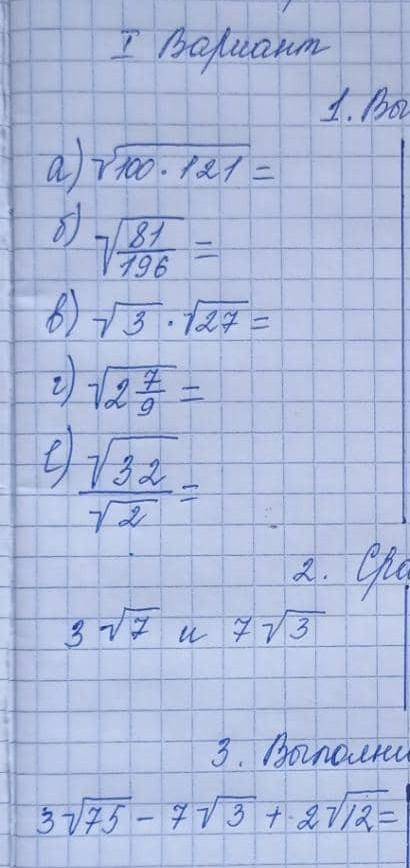 I Вариант
1. Вы
а) √100 · 121 =
б) √81/196 =
в) √3 · √27 =
г) √2 7/9 =
е) √32/√2 =
2. Сра
3√7 и 7√3
3. Выполни
3√75 - 7√3 + 2√12 =